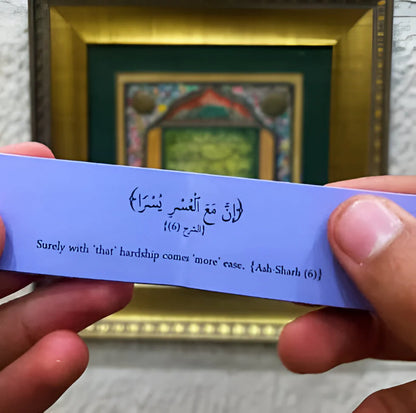 ﴿إِنَّ مَعَ ٱلْعُسْرِ يُسْرًا﴾
{الشرح (6)}
Surely with 'that' hardship comes 'more' ease. {Ash-Sharh (6)}